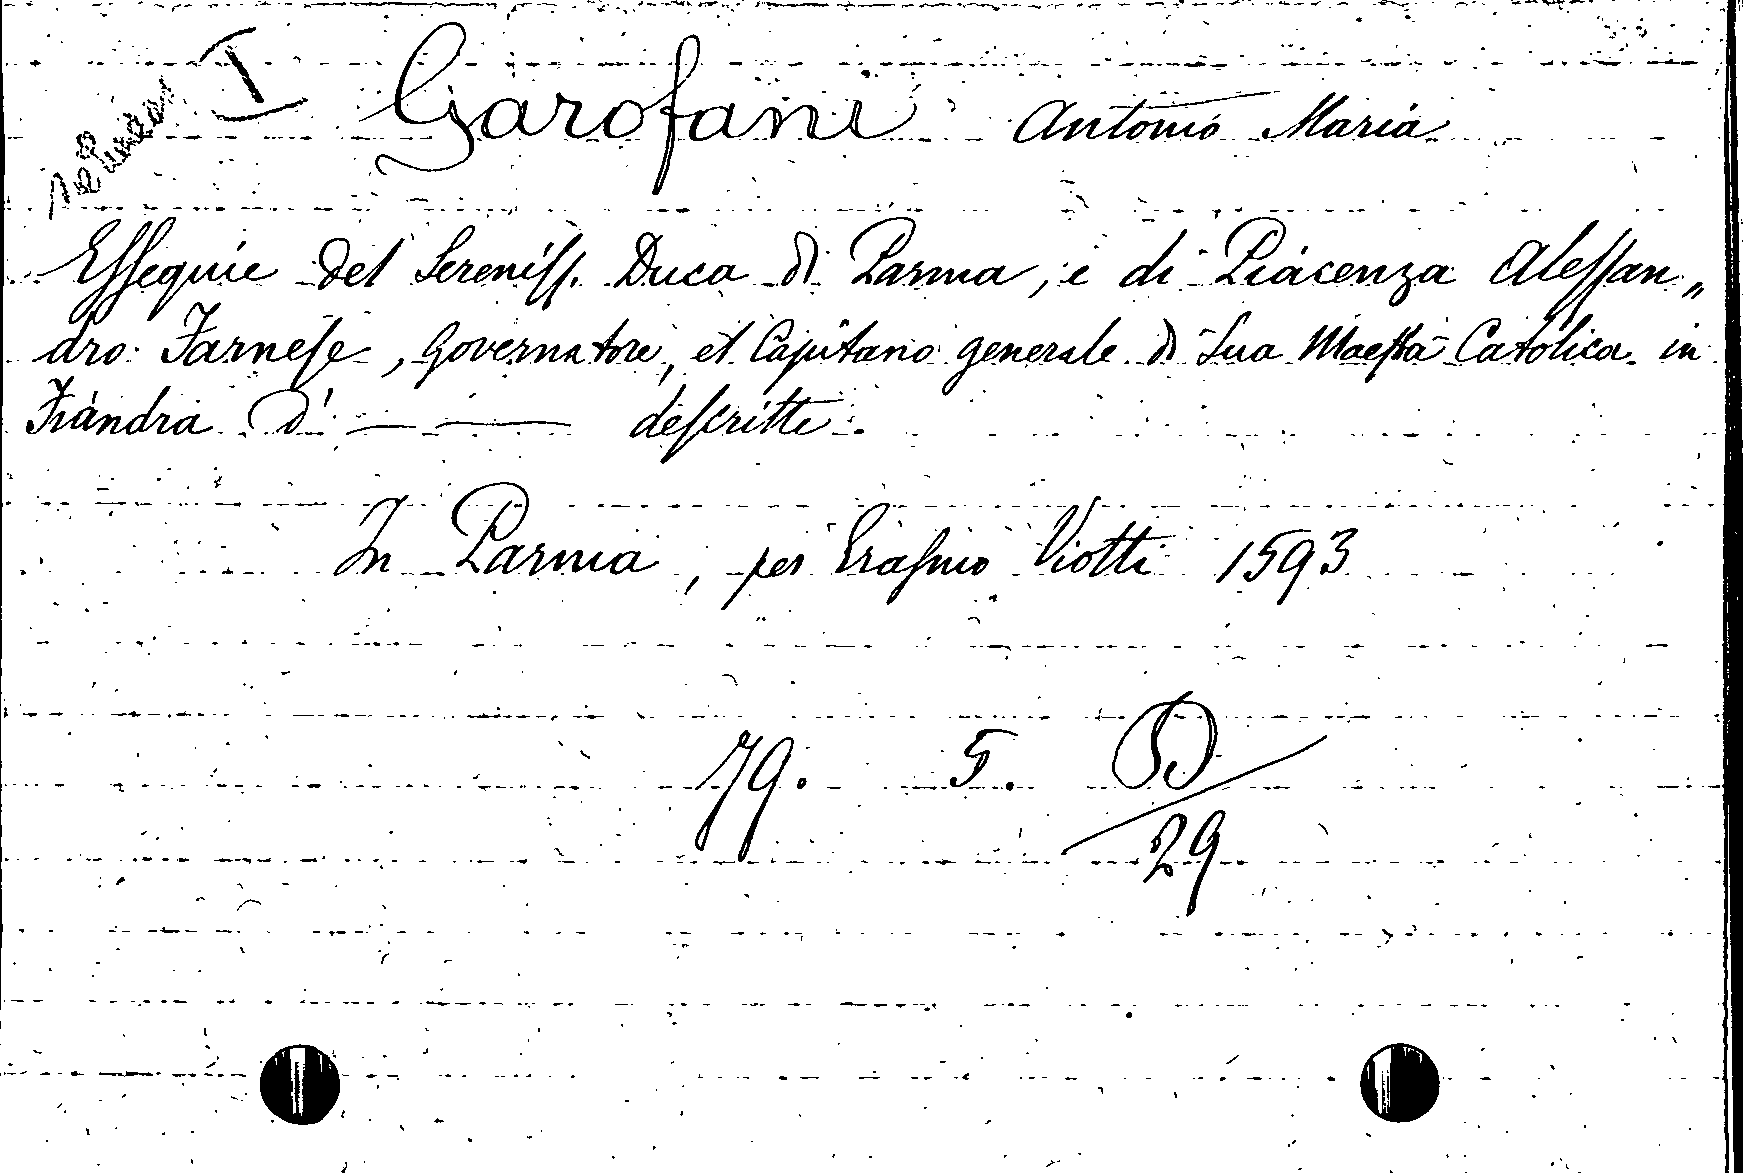 I Garofani Antonio Maria
Esseguie del Sereniss. Duca di Parma, e di Piacenza Alessan„
dro Farnese, Governatore, et Capitano generale di Sua Maestà Catolica in
Fiandra d' — — descritte.
In Parma, per Erasmo Viotti 1593
79. 5. D
29